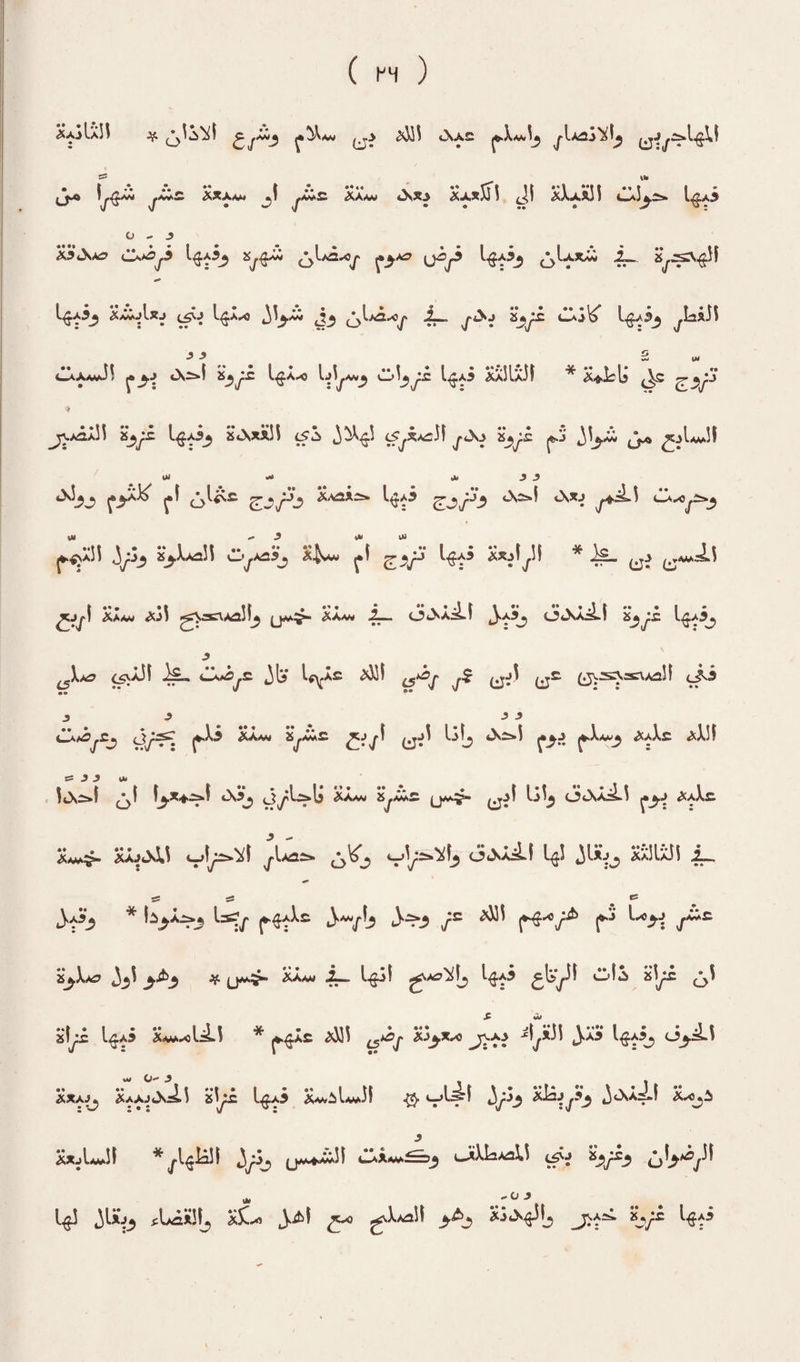 ( ٢٩ )
المهاجرين والانصار واسلم عبد الله بن سلام وشرع الاذان * الثانية
فيها حولت القبلة الى الكعبة بعد ستة عشر او سبعة عشر شهرا من
الهجرة فى شعبان وفيها فرض صوم رمضان شهره وفيها فرضت صدقة
الفطر وفيها كانت غزوة بدر فى رمضان وفى شوال منها بنى بعايشة وفيها
تزوج على فاطمة * الثالثة فيها غزوات وسرايا منها غزوة احد يوم السبت
السابع من شوال ثم غزوة بدر الصغرى لهلال ذى القعدة وفيها غزوة النضير
وحرمت الخمر بعد احد وتزوج فيها حفصة وتزوج عثمان ام كلثوم وولد
الحسن بن على * الرابعة فيها تزوج ام سلمة وقصرت الصلوة ونزل التيمم
وفيها غزوة الخندق وقيل الخندق فى سنة خمس والصحيح انه سنة اربع
ففى الصحيحين عن ابن عمر رضى الله عنهما قال عرضت على النبى صلى
الله عليه وسلم يوم احد وانا ابن اربع عشرة سنة فلم يجزنى وعرضت
عليه يوم الخندق وانا ابن خمس عشرة سنة فاجازنى وقد اجمعوا ان احدا
فى الثالثة ويقال لها الخندق والاحزاب وكان حصار الاحزاب المدينة خمسة
عشر يوما ثم هزمهم الله عز وجل وارسل عليهم ريحا وجنودا * وقيل
ان غزاة ذات الرقاع فيها والاصح انها فى سنة خمس * وهو اول صلوة
الخوف وفيها قتل القراء ببير معونة رضى الله عنهم * الخامسة فيها غزاة
دومة الجندل وقريظة ونزل الحجاب * السادسة فيها غزاة الحديبية وبيعة
الرضوان وغزوة بنى المصطلق وكسفت الشمس ونزل الظهار * السابعة
فيها غزوة خيبر والهدنة وهو الصلح مع اهل مكة والقضاء ويقال لها